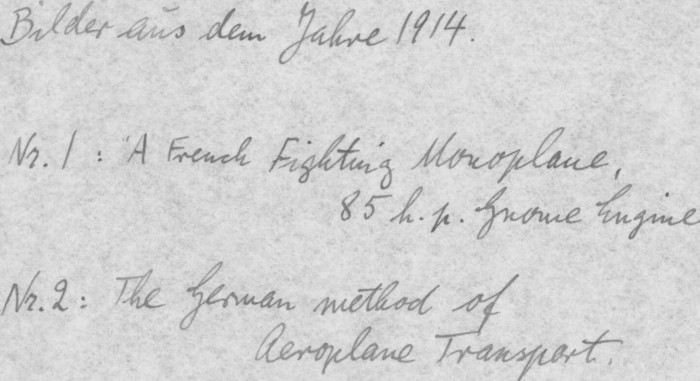 Bilder aus dem Jahre 1914.
Nr. 1 : "A French Fighting Monoplane,
85 h. p. Gnome Engine
Nr. 2 : The German method of
Aeroplane Transport.